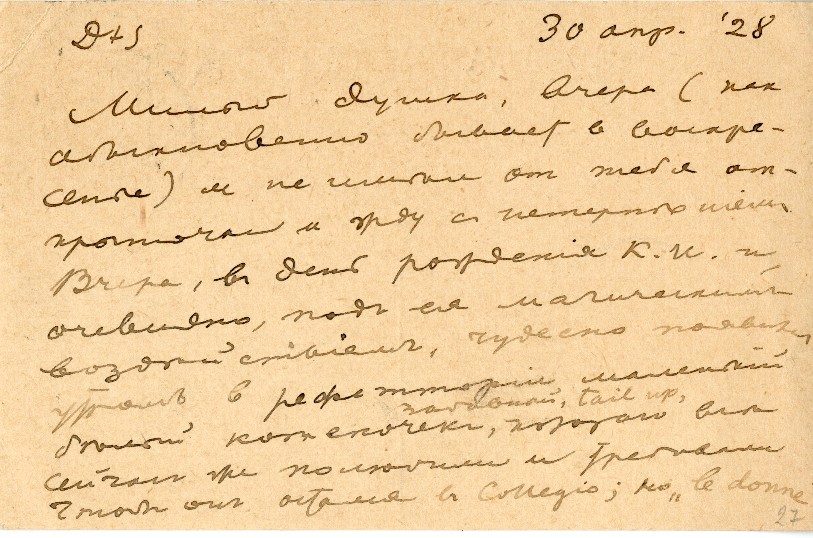 D+S 30 апр. '28
Милый Душка, Вчера (как
обыкновенно бывает в воскре-
сенье) я не имѣл от тебя от-
крыточки и жду с нетерпѣніем.
Вчера, въ день рожденія К. И. и
очевидно, подъ ея магическимъ
воздѣйствіемъ, чудесно появился
утромъ в рефетторіи маленькій
забавный, tail up,
бѣлый котеночекъ, котораго всѣ
сейчасъ же полюбили и требовали
чтобъ онъ остался въ Collegio; но „le donne"
27